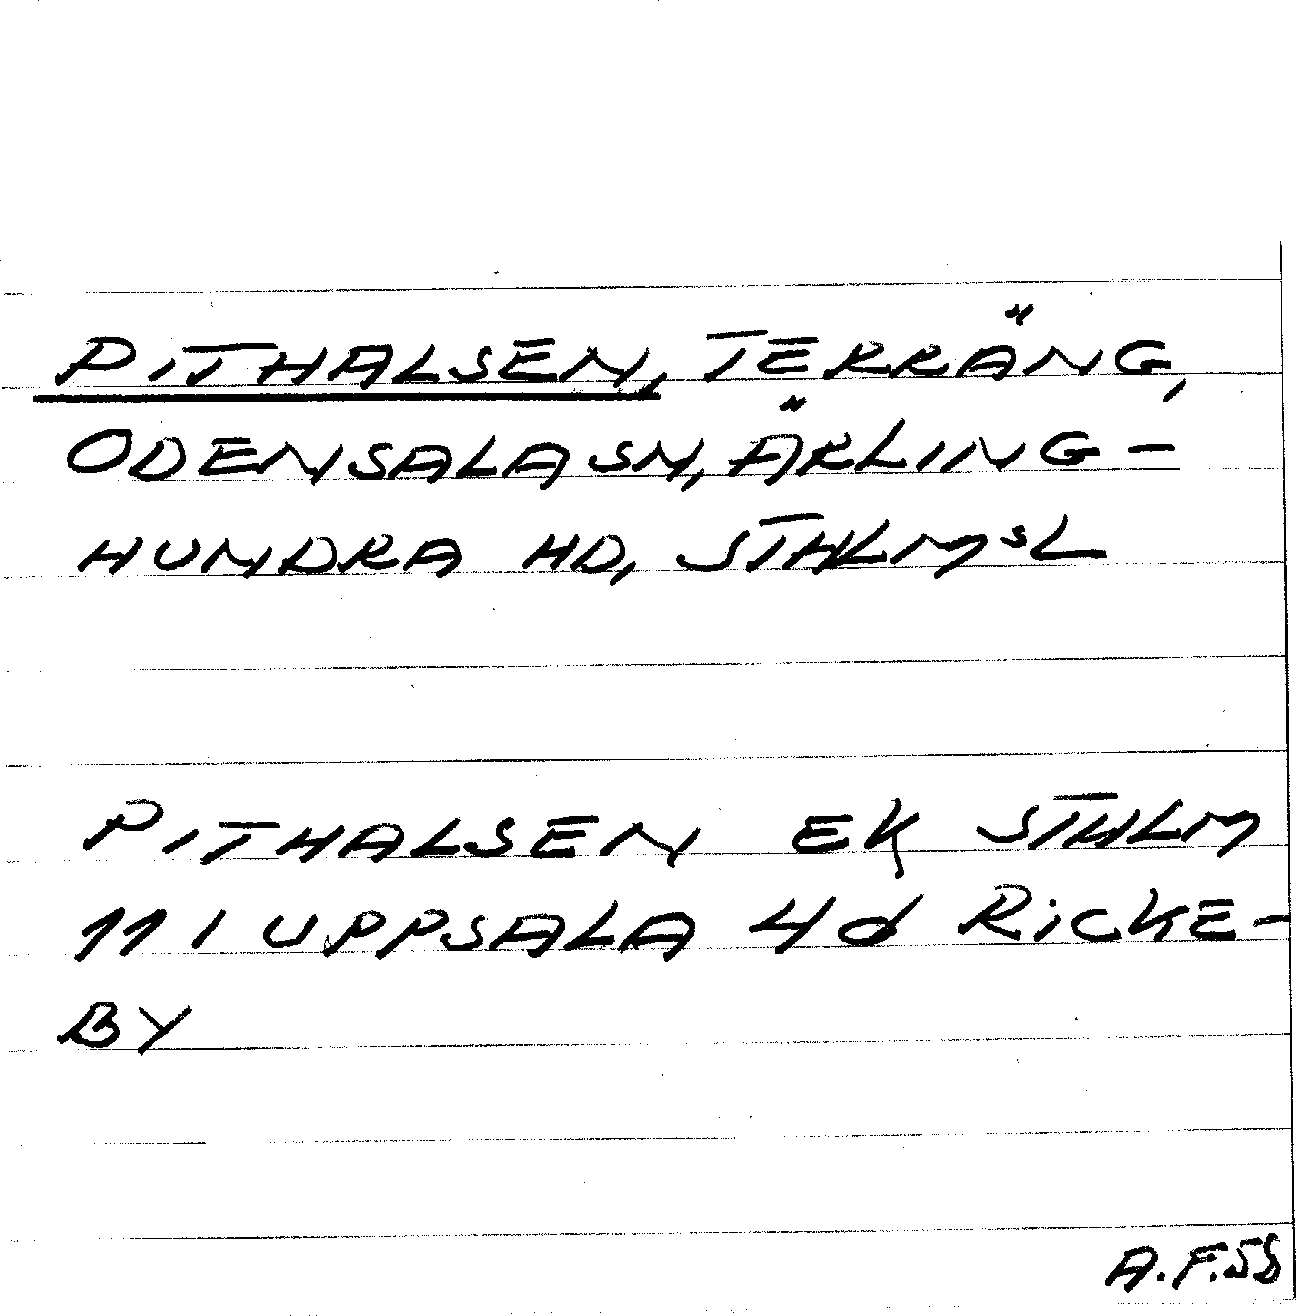 PITHALSEN, TERRÄNG,
ODENSALA SN, ÄRLING-
HUNDRA HD, STHLMSL
PITHALSEN EK STHLM
11 I UPPSALA 4d RICKE-
BY
A.F.58